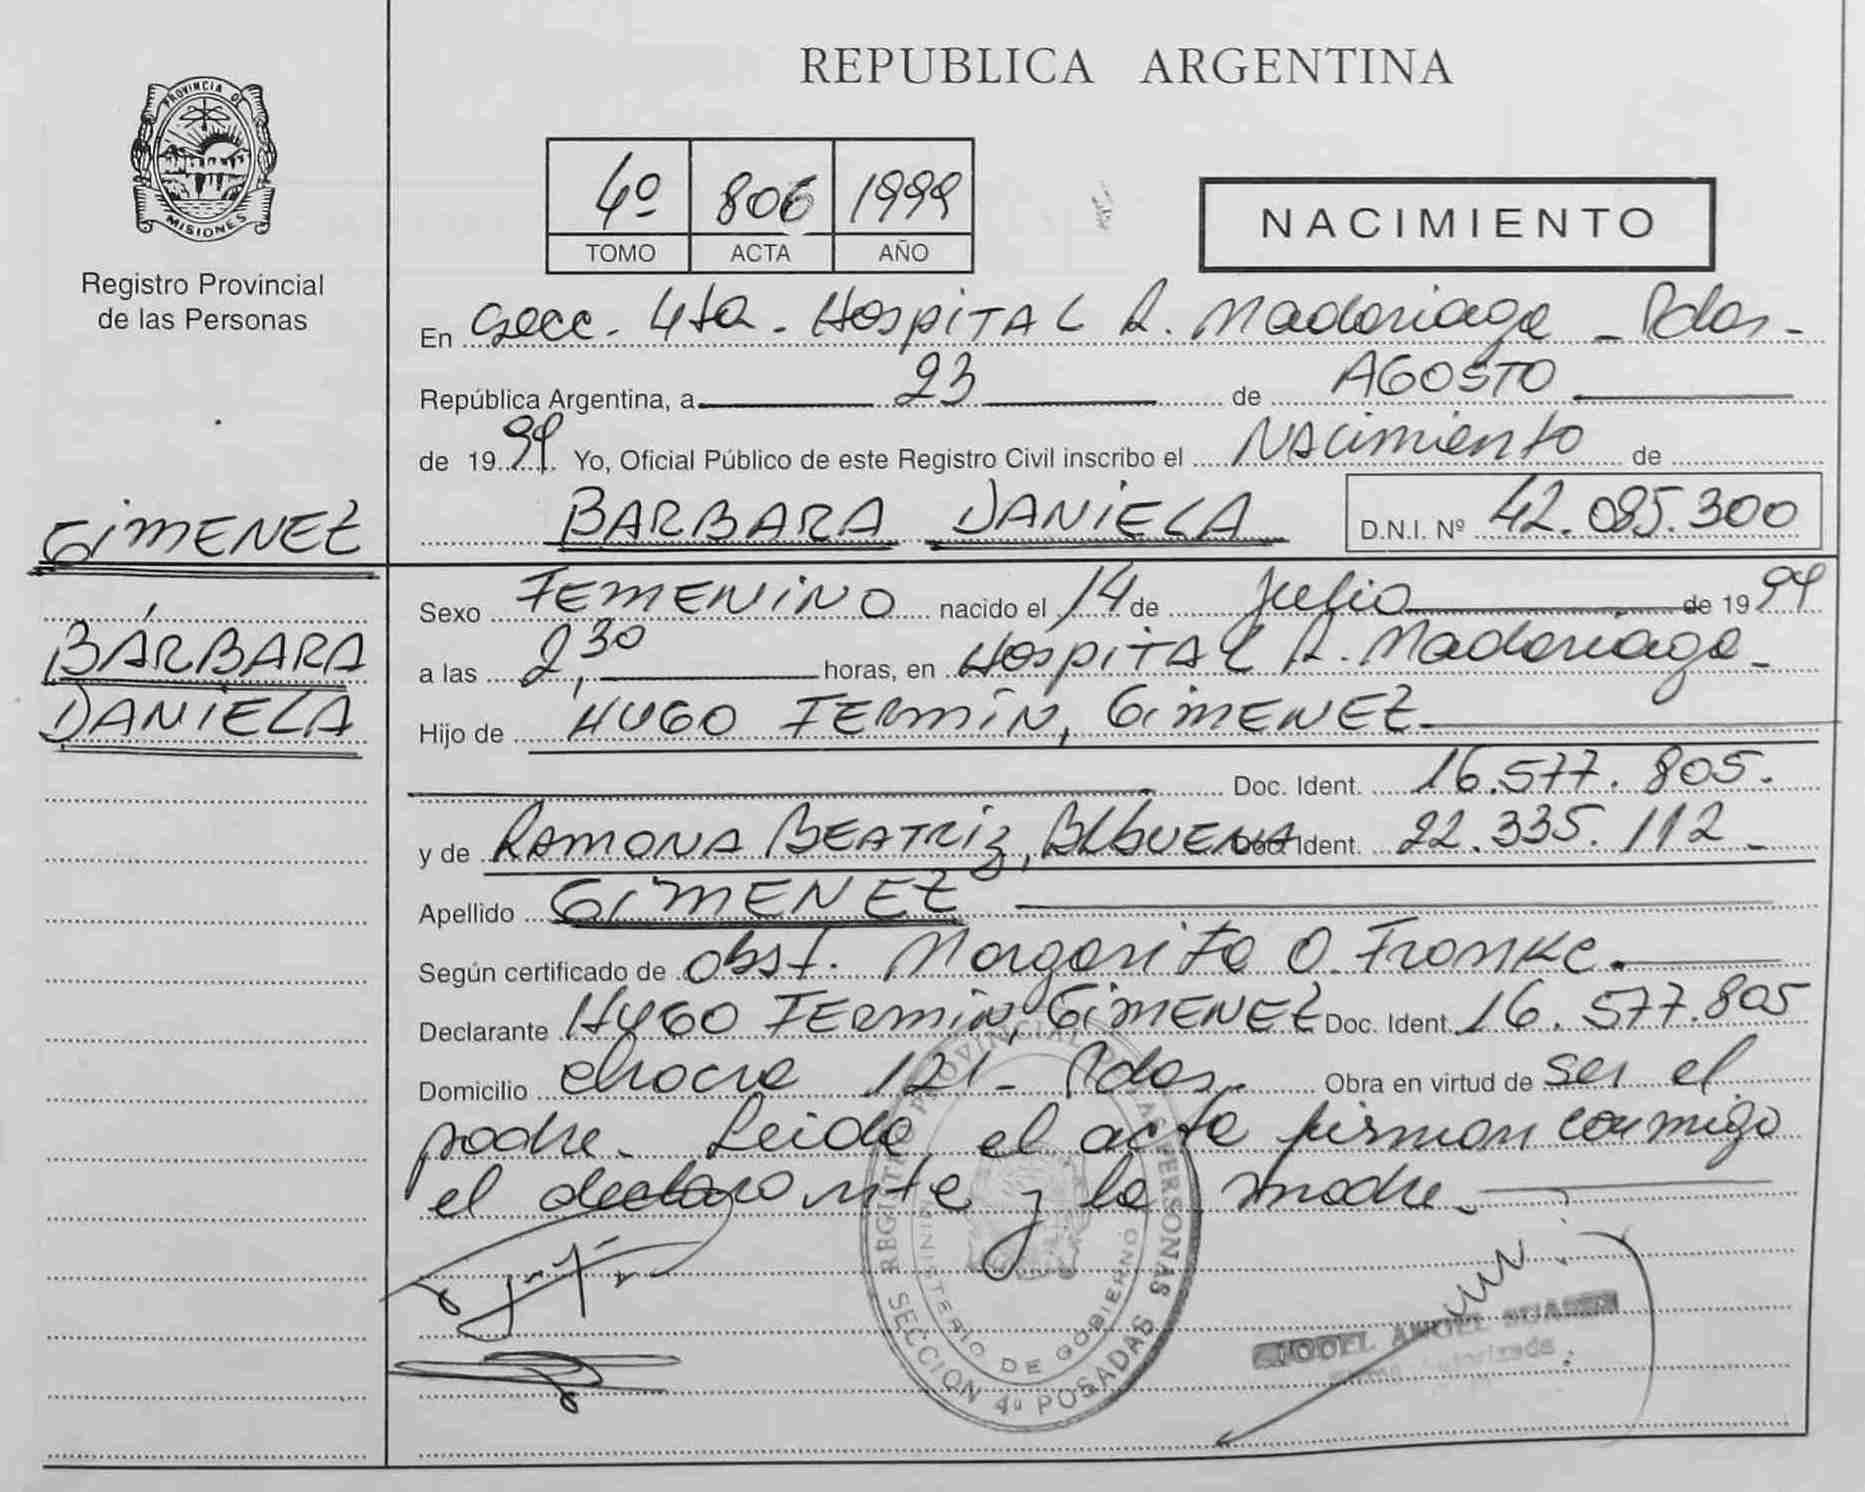 REPUBLICA ARGENTINA
PROVINCIA DE
MISIONES
Registro Provincial
de las Personas
4º 806 1999
TOMO ACTA AÑO
NACIMIENTO
En Secc. 4ta. HOSPITAL R. Madariaga - Pdas -
República Argentina, a 23 de AGOSTO
de 1999. Yo, Oficial Público de este Registro Civil inscribo el NAcimiento de
BARBARA DANIELA D.N.I. Nº 42.085.300
GIMENEZ
BÁRBARA
DANIELA
Sexo FEMENINO nacido el 14 de Julio de 1999
a las 2,30 horas, en HOSPITAL R. Madariaga -
Hijo de HUGO FERMIN, GIMENEZ
Doc. Ident. 16.577.805.
y de RAMONA BEATRIZ, ALBUENA Doc. Ident. 22.335.112 -
Apellido GIMENEZ
Según certificado de Obst. Margarita O. Franke.
Declarante HUGO FERMIN, GIMENEZ Doc. Ident. 16.577.805
Domicilio 121 - Pdas. Obra en virtud de ser el
padre. Leida el acta firman conmigo
el declarante y la madre.
REGISTRO PROVINCIAL DE LAS PERSONAS
MINISTERIO DE GOBIERNO
SECCION 4ª POSADAS
ANGEL
Autorizada